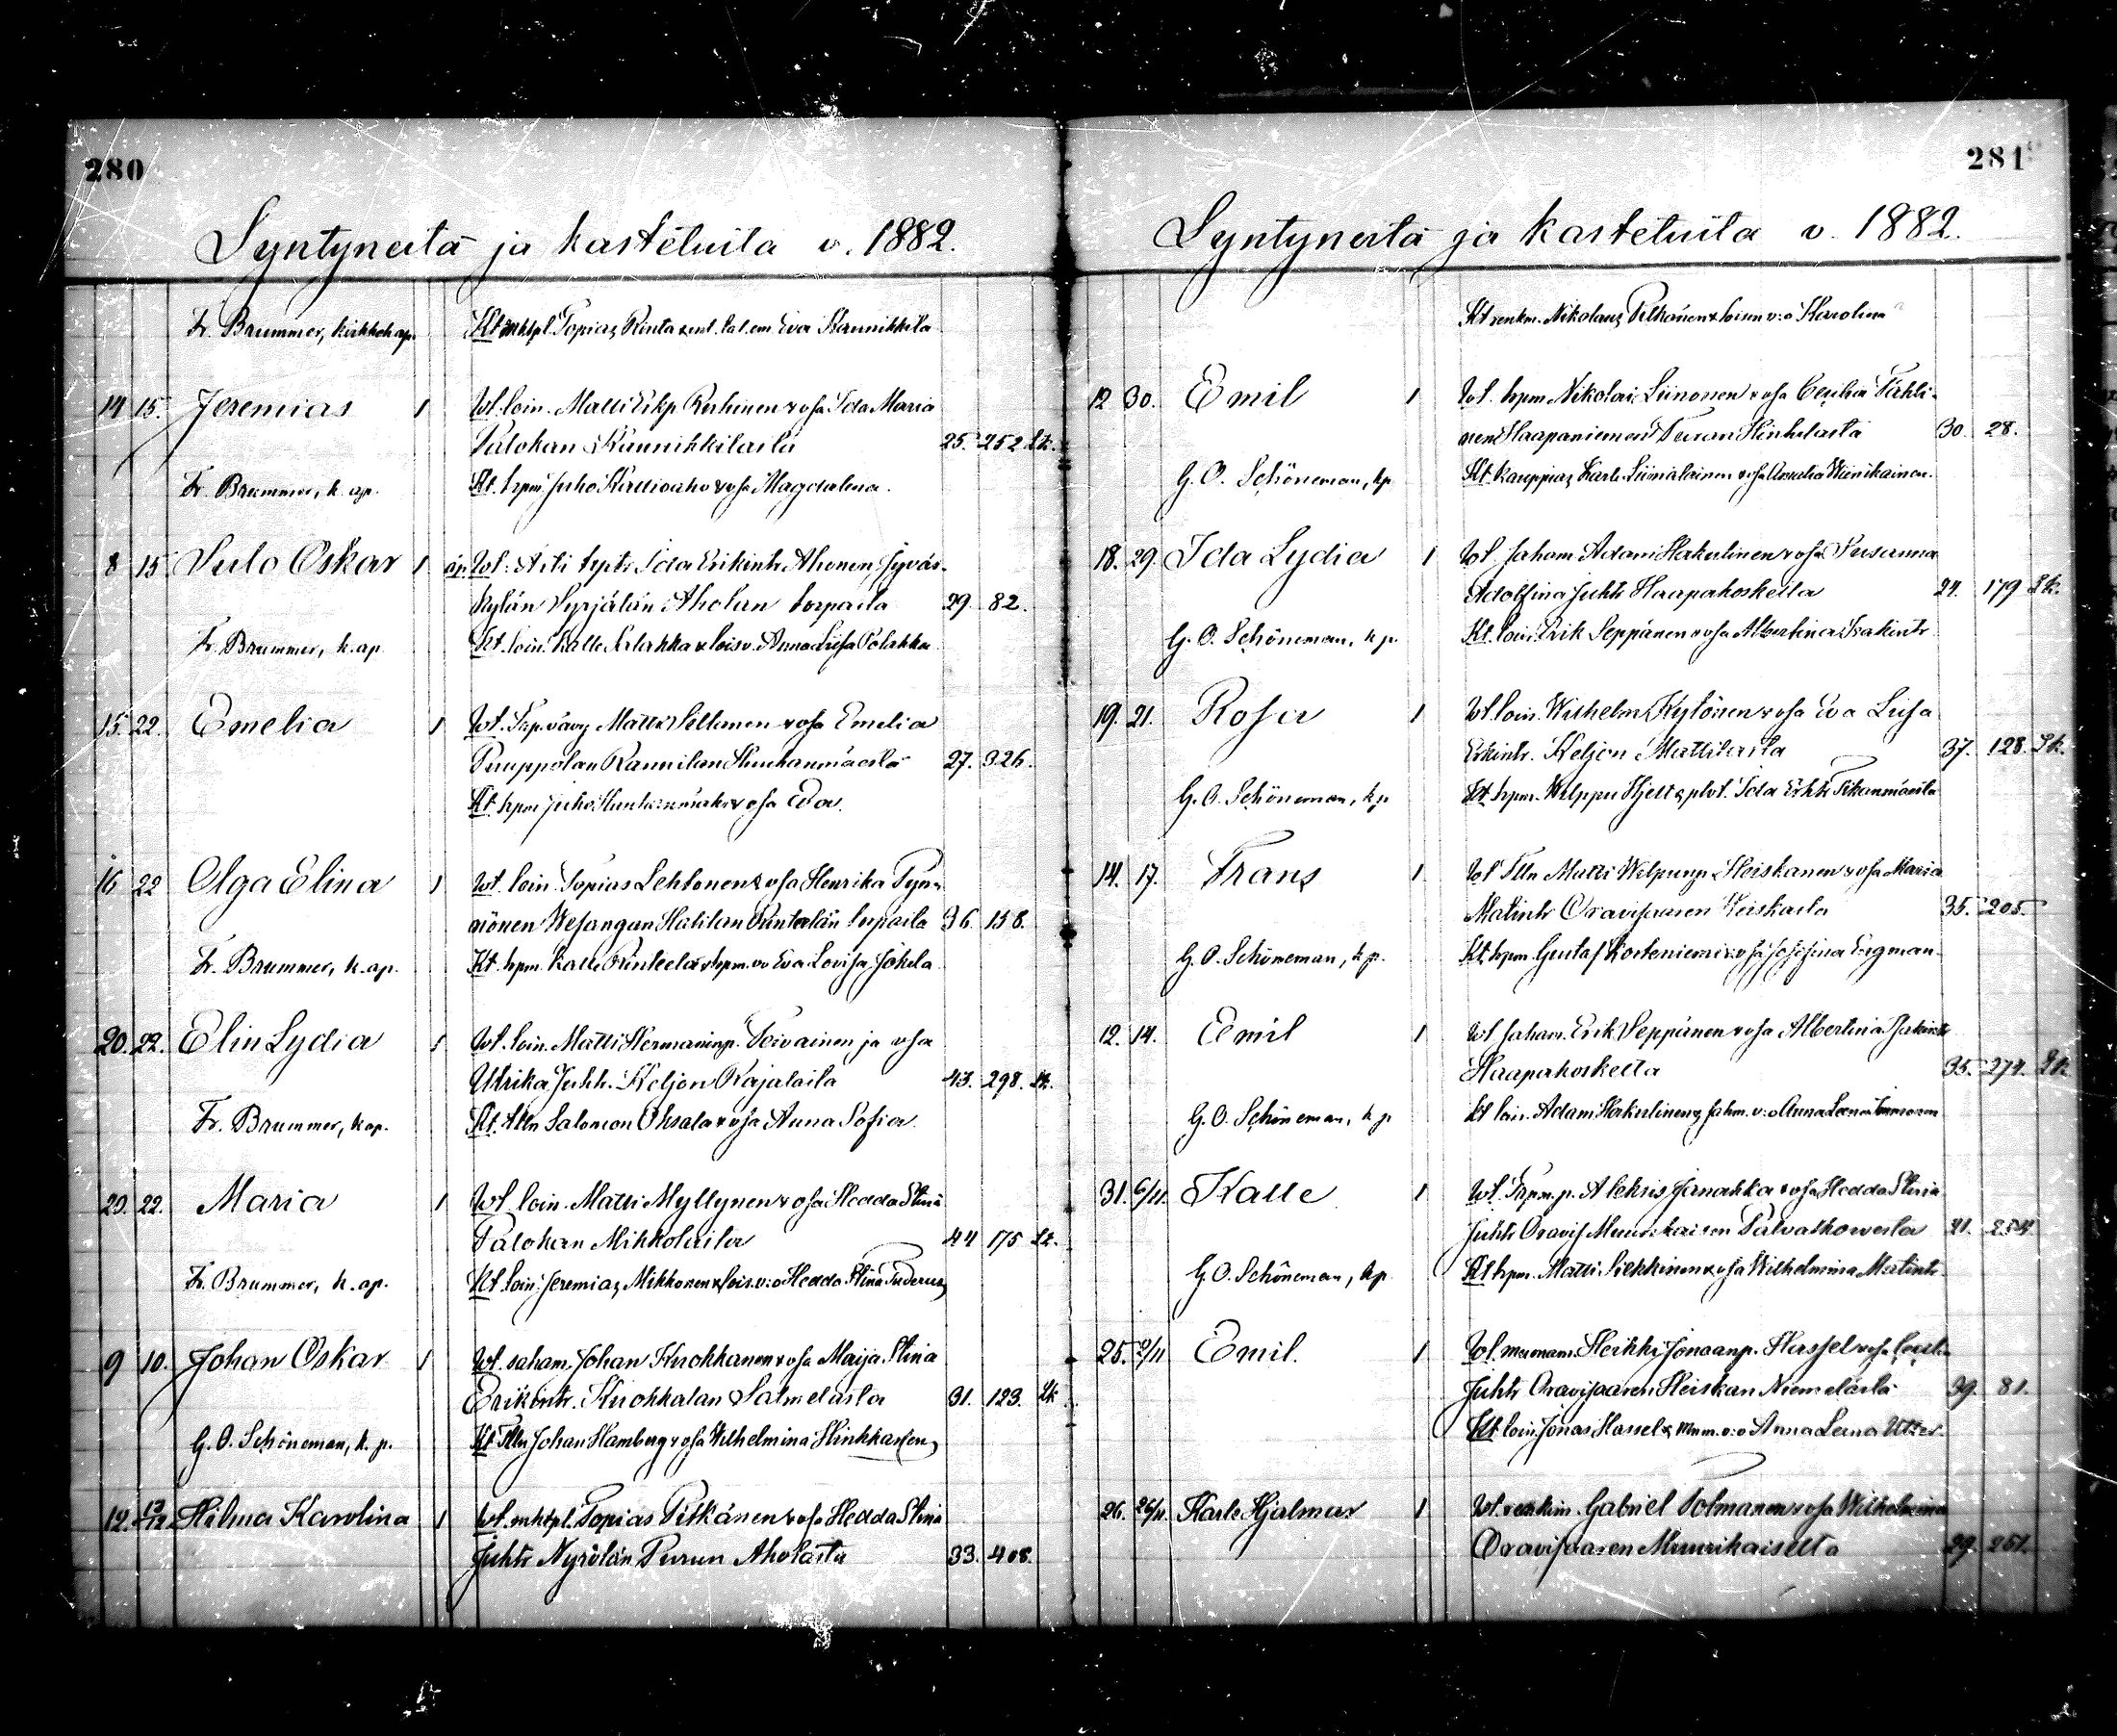 280
Syntyneitä ja kastetuita v. 1882.
Fr. Brummer, kirkkoh. ap. Kt mhtpl. Topias Rinta & ent. tal. em. Eva Kaunikkila
14 15. Jeremias 1 Wt. loin. Matti Erkp Ruhinen & vsa Ida Maria
Palokan Kaunihkilasta 25. 252 Lk.
Fr. Brummer, k. ap. Kt. hpm Juho Kallioaho & vsa Magdalena.
8 15 Sulo Oskar 1 äp. Wt. Äiti typtr Ida Erikintr Ahonen, Jyväs-
kylän Syrjälän Aholan torpasta 29. 82.
Fr. Brummer, k. ap. Kt. loin. Kalle Polahka & lois v. Anna Liisa Polahka
15. 22. Emelia 1 Wt. Trp. vävy Matti Seltmen & vsa Emelia
Puuppolan Rannilan Huuhanmäestä 27. 326.
Kt hpm Juho Huuhanmäki & vsa Eva.
16 22 Olga Elina 1 Wt. loin. Topias Lehtonen & vsa Henrika Tyn-
niönen Wesangan Halilan Rintalän torpasta 36. 158.
Fr. Brummer, k. ap. Kt. hpm. Kalle Rintelä & hpm. vo Eva Lovisa Jokela
20. 22. Elin Lydia 1 Wt. loin. Matti Hermaninp. Toivainen ja vsa
Ulrika Juhtr. Keljon Rajalasta 43. 298. Lk.
Fr. Brummer, k. ap. Kt. tlln Salomon Oksala & vsa Anna Sofia
20. 22. Maria 1 Wt. loin. Matti Myllynen & vsa Hedda Stina
Palokan Mikkolasta 44 175 Lk.
Fr. Brummer, k. ap. Kt. loin. Jeremias Mikkonen & lois. v:o Hedda Stina Tuderus
9 10. Johan Oskar 1 Wt. saham. Johan Kuokkanen & vsa Maija Stina
Erikintr. Kuohkalan Salmelasta 31. 123. Lk
G. O. Schöneman, k. p. Kt Tlln Johan Hamberg & vsa Wilhelmina Hinkkanen
12. 13/12 Hilma Karolina 1 Wt. mhtpl. Topias Pitkänen & vsa Hedda Stina
Juhtr Nyrölän Purun Aholasta 33. 408.
281
Syntyneitä ja kastetuita v. 1882.
Kt renkm. Nikolaus Pitkänen & loisen v:o Karolina
12 30. Emil 1 Wt. hpm Nikolai Liinonen & vsa Cecilia Tähti-
nen Haapaniemen Teiran Hinkulasta 30. 28.
G. O. Schöneman, kp Kt. kauppias Karl Liimatainen & vsa Amalia Weinikainen.
18. 29. Ida Lydia 1 Wt. saham. Adam Hakulinen & vsa Susanna
Adolfina Juhtr Haapakoskelta 24. 179 Lk.
G. O. Schöneman, k p. Kt. loin. Erik Seppänen & vsa Albertina Isakintr
19. 21. Rosa 1 Wt loin. Wilhelm Kylönen & vsa Eva Lisa
Erkintr. Keljon Mattilasta 37. 128. Lk.
G. O. Schöneman, k p Kt. hpm. Wilppu Hjelt & plvt. Ida Erktr Tikanmäestä
14. 17. Frans 1 Wt Tlln Matti Wilpunp. Heiskanen & vsa Maria
Matintr Oravisaaren Heiskasta 35. 205.
G. O. Schöneman, k p. Kt. hpm Gustaf Kosteniemi & vsa Josefina Engman
12. 14. Emil 1 Wt saham. Erik Seppänen & vsa Albertina Isakintr
Haapakoskelta 35. 274. Lk
G. O. Schöneman, k p Kt loin. Adam Hakulinen & sahm. v:o Anna Leena
31. 6/11. Kalle 1 Wt. Trpm. p. Aleksis Janakka & vsa Hedda Stina
Juhtr Oravis Muurikaisen Palvatkowesta 21. 254.
G. O. Schöneman, kp. Kt hpm. Matti Siekkinen & vsa Wilhelmina Matintr
25. 2/11 Emil. 1 Wt. Heikki Jonaanp. Hassel vsa
Juhtr Oravisaaren Heiskan Niemelästä 39. 81.
Kt loin Jonas Hassel & Mmm. v:o Anna Leena
26. 26/11. Karl Hjalmar 1 Wt. renkm. Gabriel Tolmanen & vsa Wilhelmina
Oravisaaren Muurikaiselta 29. 251.